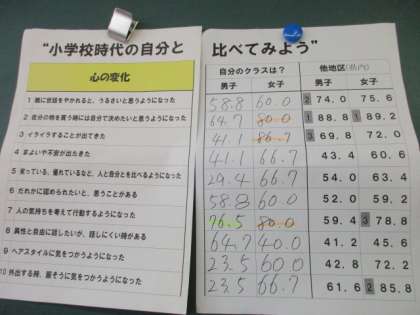 “小学校時代の自分と
心の変化
1 親に世話をやかれると、うるさいと思うようになった
2 自分の物を買う時は自分で決めたいと思うようになった
3 イライラすることが出てきた
4 気よいや不安が出たきた
5 劣っている、優れているなど、人と自分とを比べるようになった
6 だれかに認められたいと、思うことがある
7 人の気持ちを考えて行動するようになった
8 異性と自由に話したいが、話しにくい時がある
9 ヘアスタイルに気をつかうようになった
10 外出する時、服そうに気をつかうようになった
比べてみよう”
自分のクラスは? 他地区(県内)
男子 女子 男子 女子
58.8 60.0 2 74.0 75.6
64.7 80.0 1 88.8 1 89.2
41.1 86.7 3 69.8 72.0
41.1 66.7 43.4 60.6
29.4 66.7 54.0 63.4
58.8 60.0 52.0 59.2
76.5 80.0 59.4 3 78.8
64.7 40.0 41.2 45.6
23.5 60.0 42.8 72.2
23.5 66.7 61.6 2 85.8